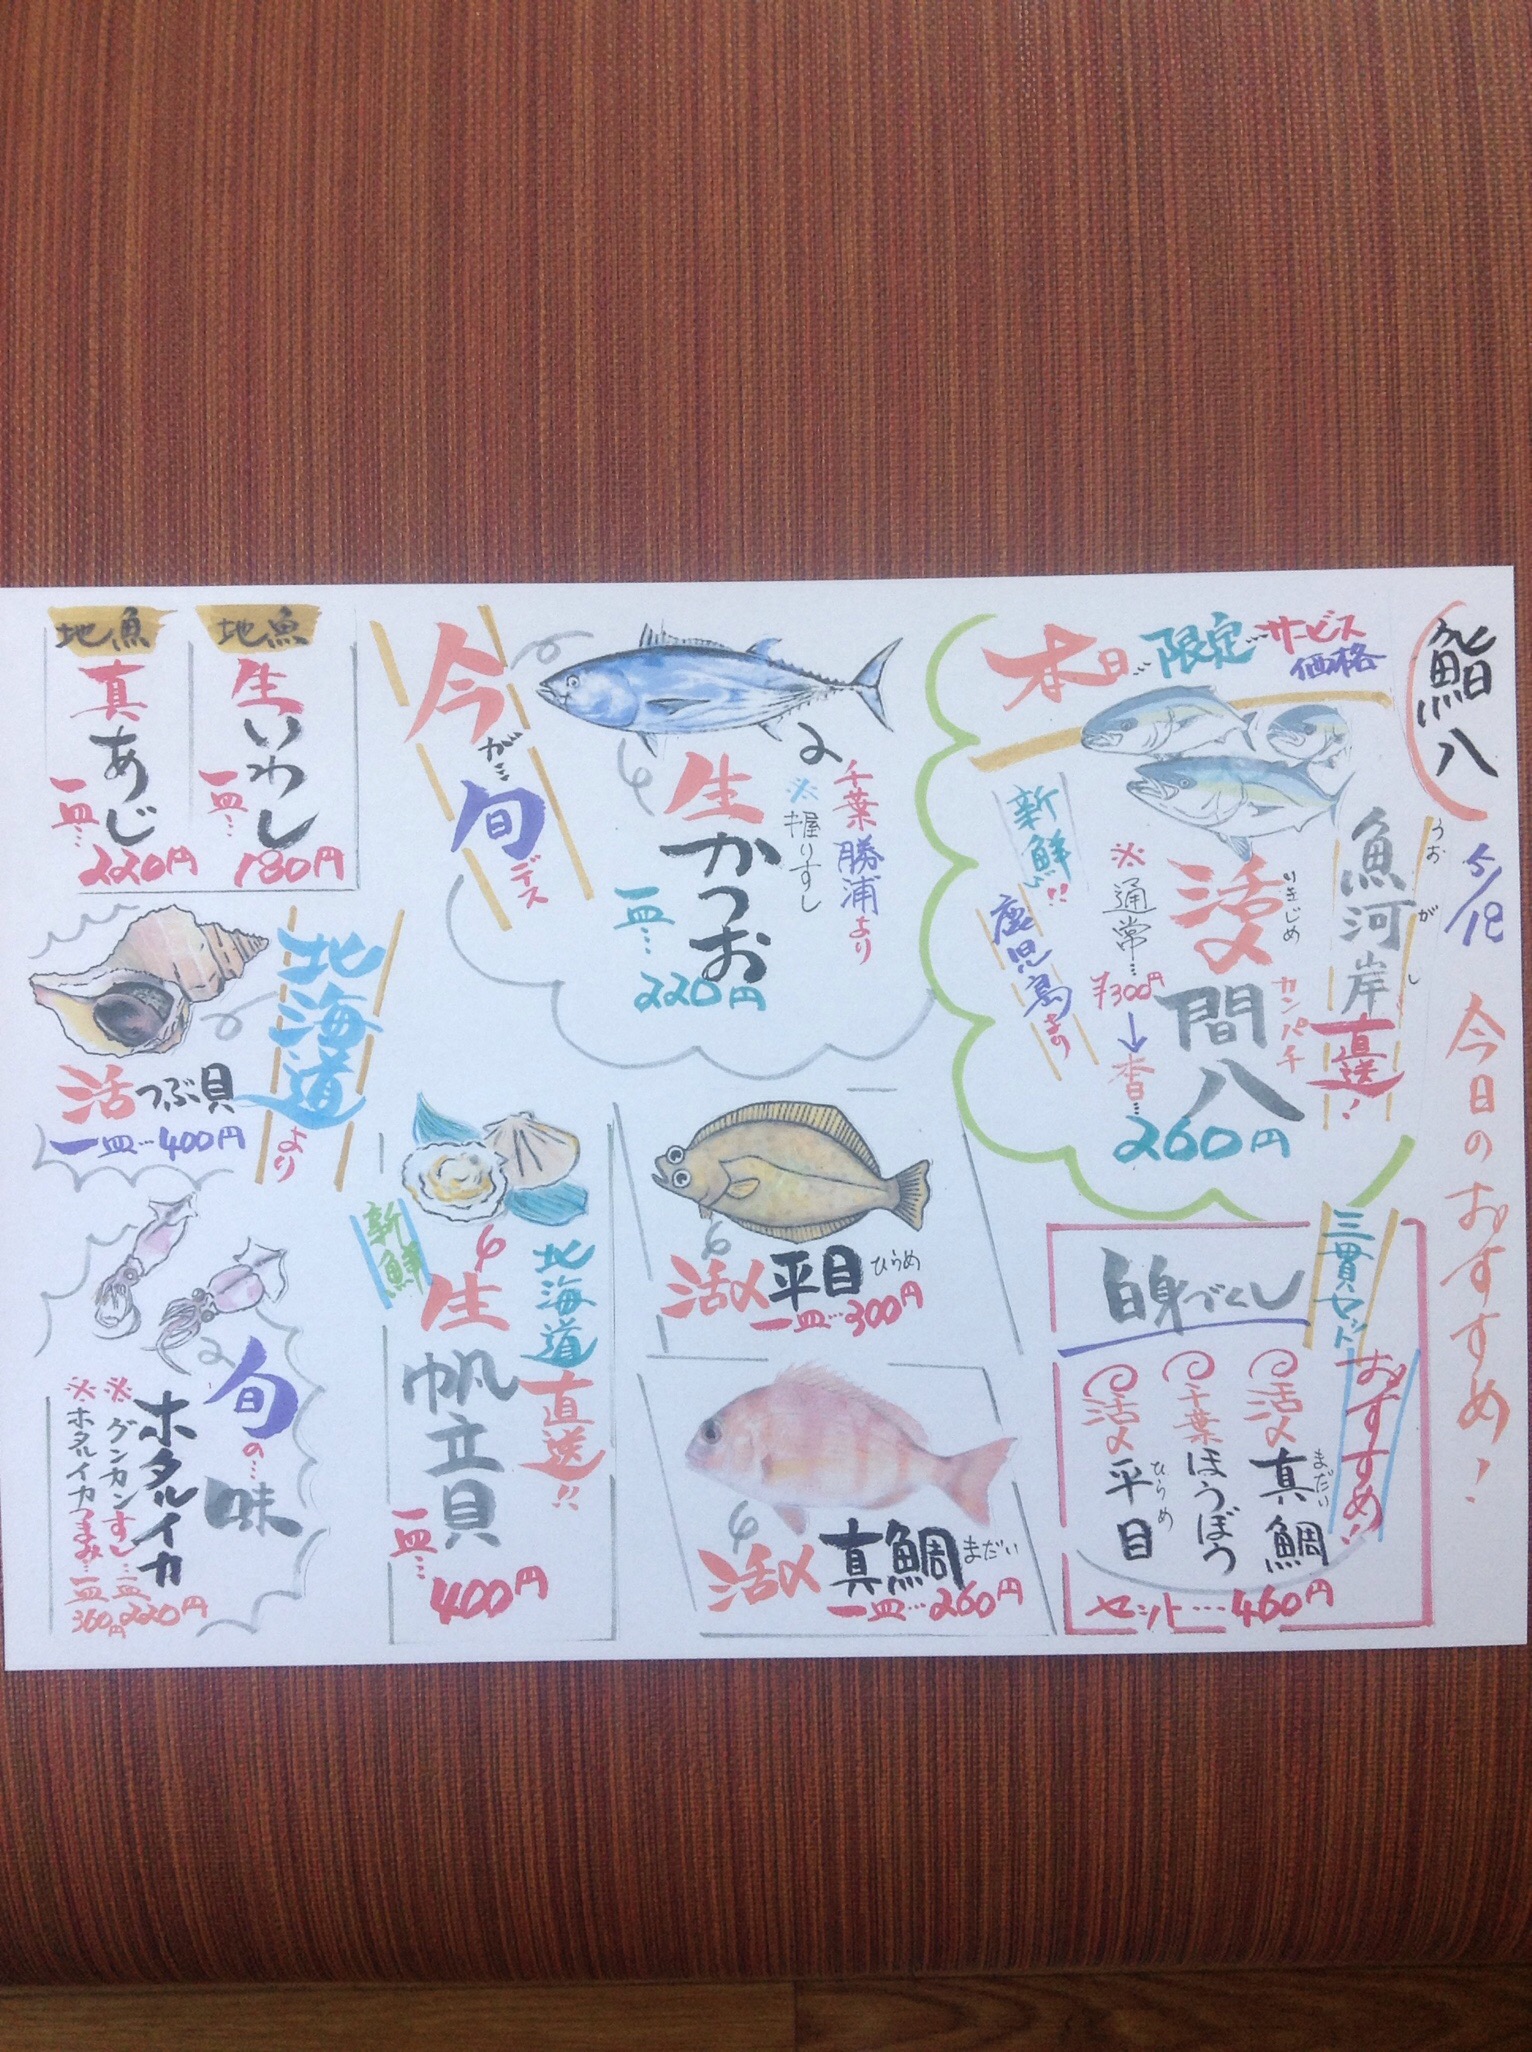 鮨八
5/18
今日のおすすめ!
本日…限定…サービス
価格
魚河岸
うおがし
直送!
活〆
いきじめ
間八
カンパチ
※通常…
¥300円
↓
本日…
260円
新鮮!!
鹿児島より
三貫セット
おすすめ!!
白身づくし
活〆真鯛
まだい
千葉ほうぼう
活〆平目
ひらめ
セット…460円
今が…旬デス
千葉勝浦より
※握りすし
生かつお
一皿…
220円
活〆平目
ひらめ
一皿…300円
活〆真鯛
まだい
一皿…260円
北海道直送!!
新鮮
生帆立貝
一皿…
400円
地魚
生いわし
一皿…
180円
地魚
真あじ
一皿…
220円
北海道より
活つぶ貝
一皿…400円
旬の…味
ホタルイカ
※グンカンすし…一皿
220円
※ホタルイカつまみ…一皿
360円